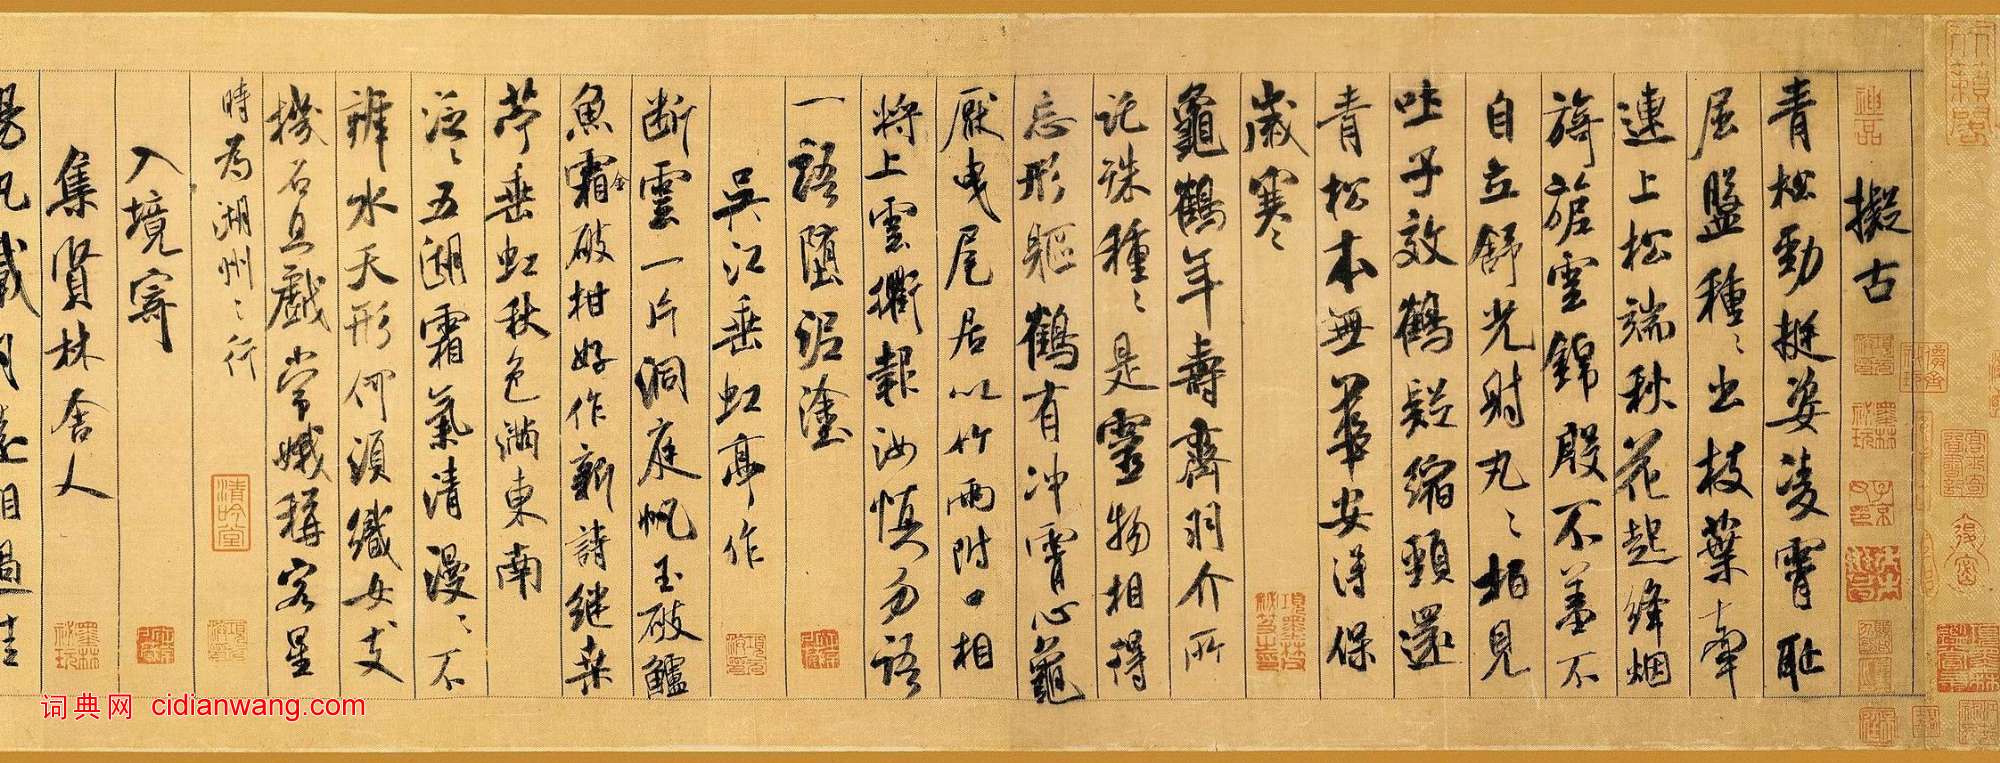 擬古
青松勁挺姿凌霄恥
屈盤種〻出枝葉牽
連上松端秋花起絳烟
旖旎雲錦殷不羞不
自立舒光射丸〻栢見
吐子效鶴疑縮頸還
青松本無華安得保
歲寒〻
龜鶴年壽齊羽介所
託殊種〻是靈物相得
忘形軀鶴有冲霄心龜
厭曳尾居以竹兩附口相
將上雲衢報汝慎勿語
一語墮泥塗
吳江垂虹亭作
断雲一片洞庭帆玉破鱸
魚霜金破柑好作新詩継桑
苧垂虹秋色滿東南
泛〻五湖霜氣清漫〻不
辨水天形何須織女支
機石且戲常娥稱客星
時為湖州之行
入境寄
集賢林舍人
揚帆載月遠相過佳
神品
清吟堂
词典网 cidianwang.com